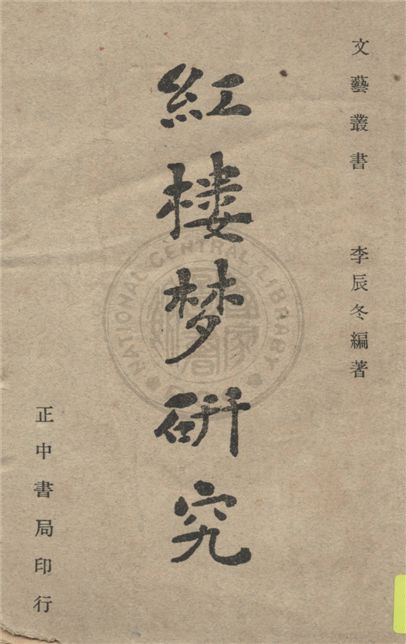 文藝叢書 李辰冬編著
紅楼梦研究
正中書局印行
NATIONAL CENTRAL